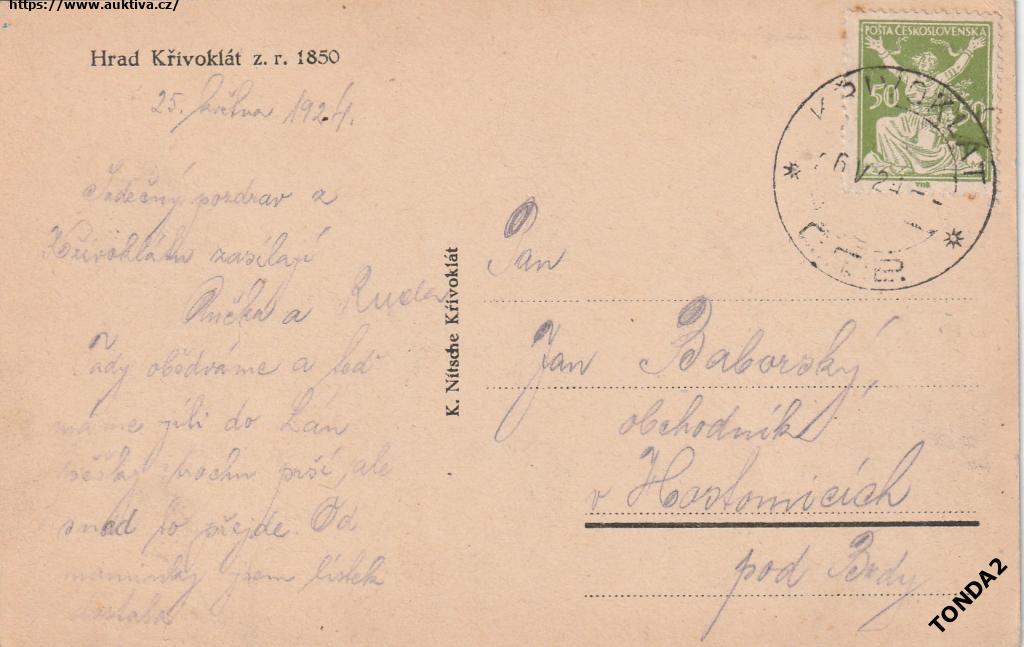 https://www.auktiva.cz/
Hrad Křivoklát z. r. 1850
25. května 1924.
Srdečný pozdrav z
Křivoklátu zasílají
a Ruda
Tady obědváme a teď
máme jíti do Lán
trochu prší, ale
snad to přejde. Od
maminky jsem lístek
dostala
K. Nitsche Křivoklát
POŠTA ČESKOSLOVENSKÁ
50 50
KŘIVOKLÁT
26 V 24
Pan
Jan Baborský,
obchodník
v Hostomicích
pod Brdy
TONDA2